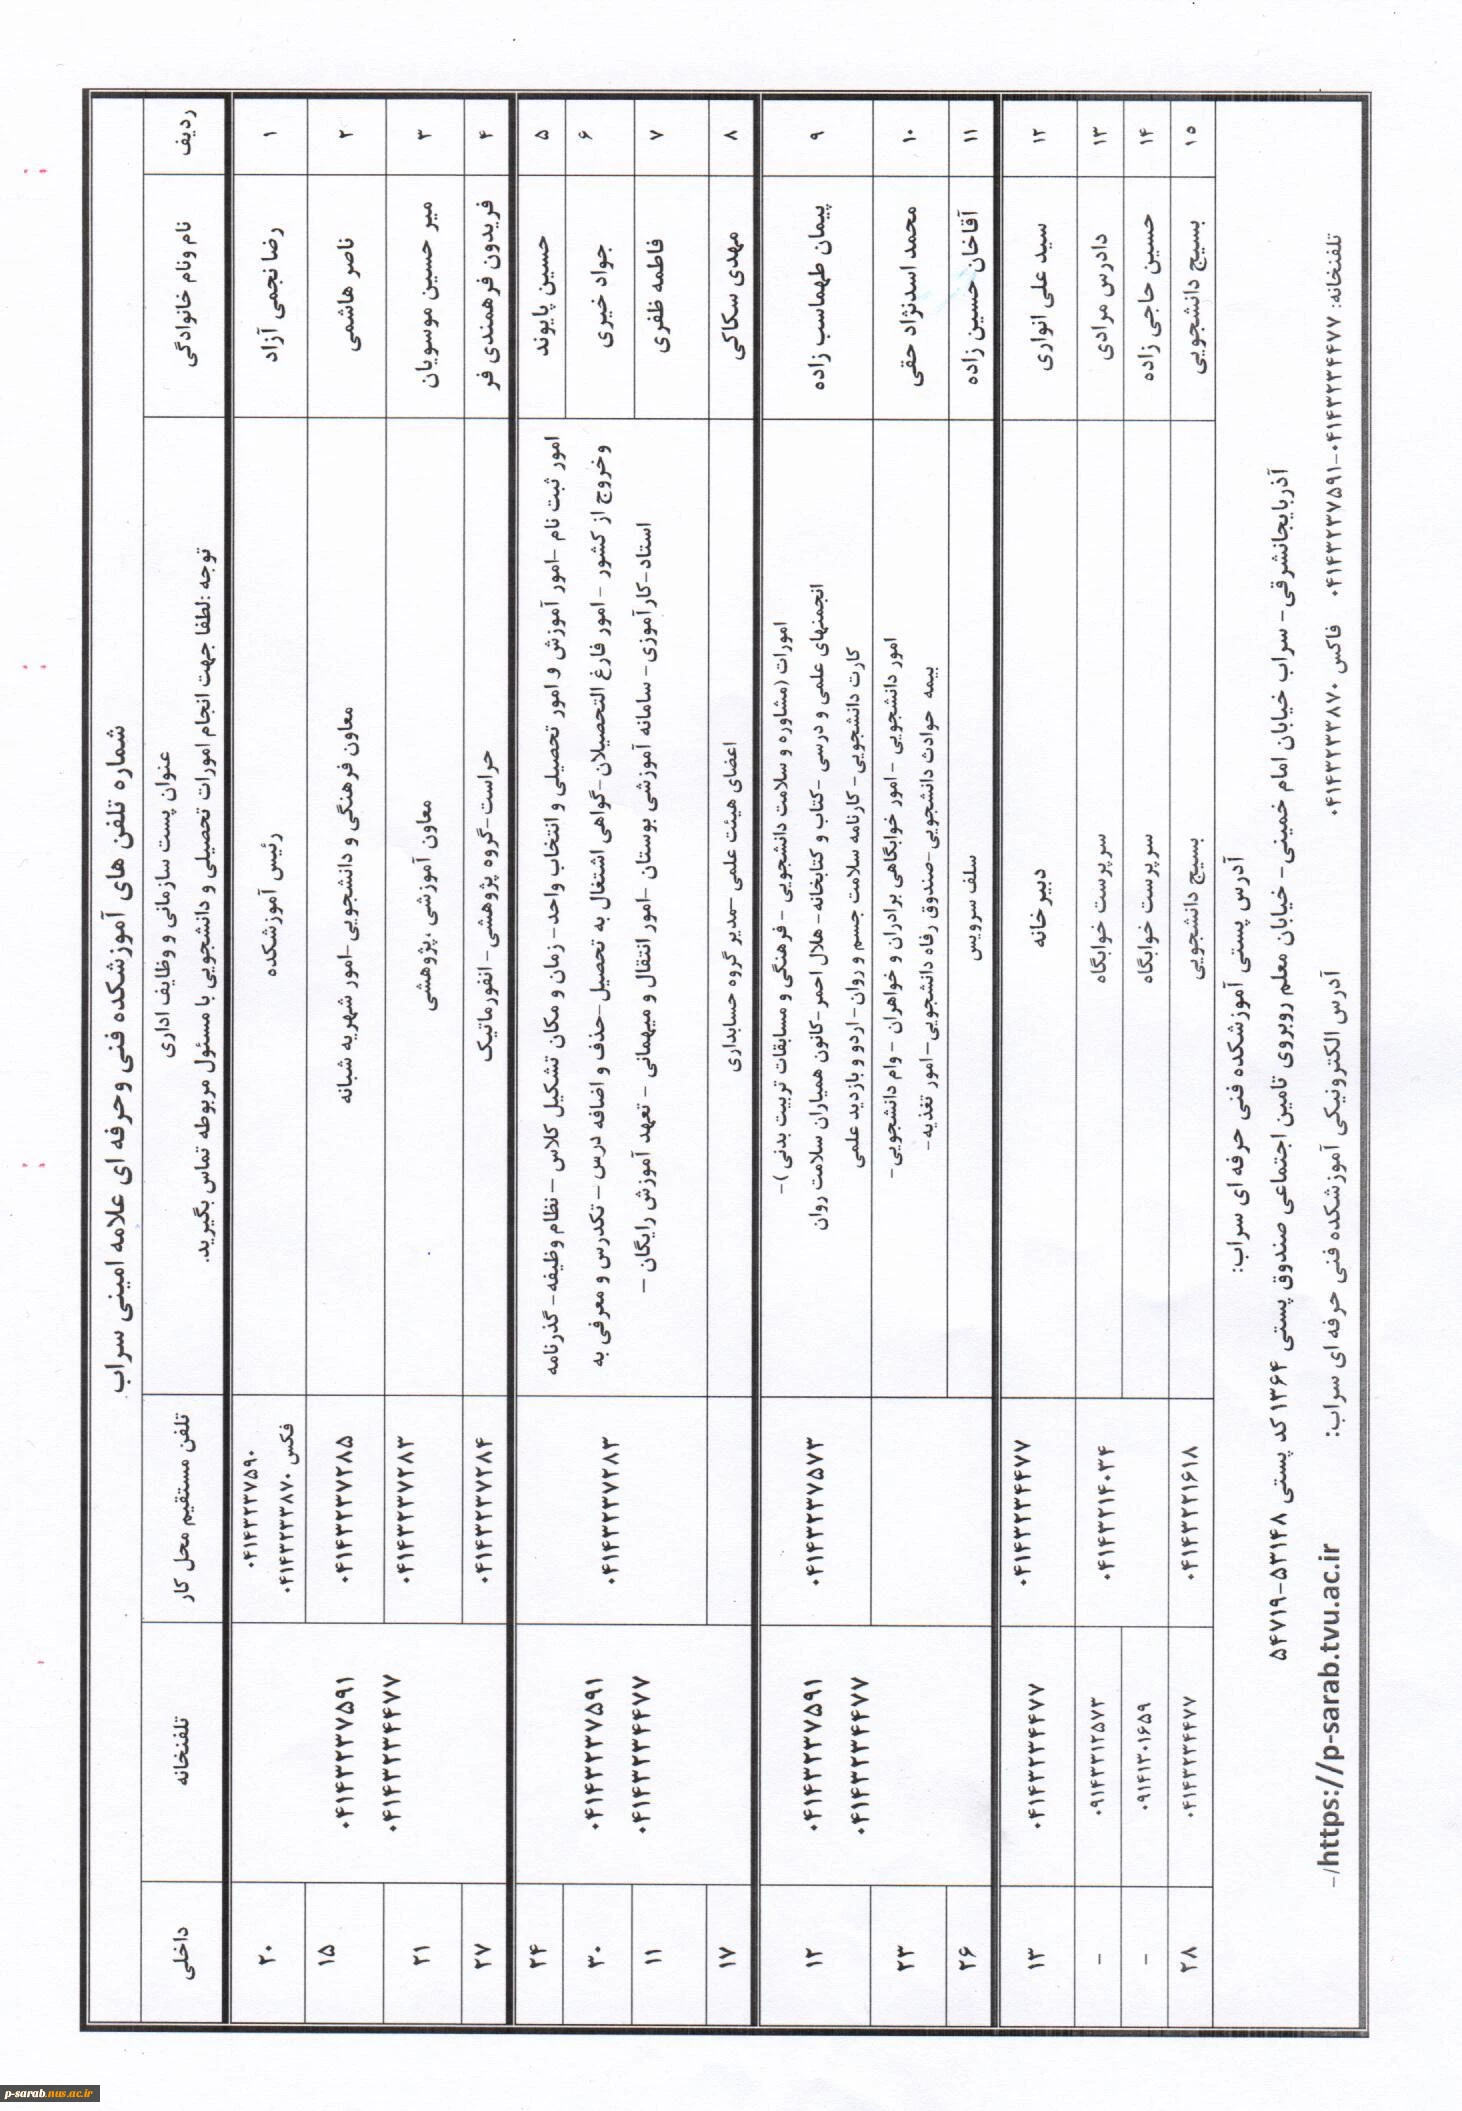 شماره تلفن های آموزشکده فنی وحرفه ای علامه امینی سراب
ردیف
نام ونام خانوادگی
عنوان پست سازمانی و وظایف اداری
توجه :لطفا جهت انجام امورات تحصیلی و دانشجویی با مسئول مربوطه تماس بگیرید.
تلفن مستقیم محل کار
تلفنخانه
داخلی
۱ رضا نجمی آزاد رئیس آموزشکده ۰۴۱۴۳۲۳۷۵۹۰ ۲۰
فکس ۰۴۱۴۳۲۳۳۸۷۰
۲ ناصر هاشمی معاون فرهنگی و دانشجویی-امور شهریه شبانه ۰۴۱۴۳۲۳۷۲۸۵ ۱۵
۰۴۱۴۳۲۳۷۵۹۱
۰۴۱۴۳۲۳۴۴۷۷
۳ میر حسین موسویان معاون آموزشی ،پژوهشی ۰۴۱۴۳۲۳۷۲۸۳ ۲۱
۴ فریدون فرهمندی فر حراست-گروه پژوهشی - انفورماتیک ۰۴۱۴۳۲۳۷۲۸۴ ۲۷
۵ حسین پایوند امور ثبت نام -امور آموزش و امور تحصیلی و انتخاب واحد- زمان و مکان تشکیل کلاس – نظام وظیفه- گذرنامه ۲۴
۶ جواد خیری وخروج از کشور -امور فارغ التحصیلان-گواهی اشتغال به تحصیل-حذف و اضافه درس – تکدرس و معرفی به ۰۴۱۴۳۲۳۷۲۸۳ ۰۴۱۴۳۲۳۷۵۹۱ ۳۰
۷ فاطمه ظفری استاد-کارآموزی- سامانه آموزشی بوستان -امور انتقال و میهمانی - تعهد آموزش رایگان – ۰۴۱۴۳۲۳۴۴۷۷ ۱۱
۸ مهدی سکاکی اعضای هیئت علمی -مدیر گروه حسابداری ۱۷
۹ پیمان طهماسب زاده امورات (مشاوره و سلامت دانشجویی - فرهنگی و مسابقات تربیت بدنی )-
انجمنهای علمی و درسی -کتاب و کتابخانه- هلال احمر-کانون همیاران سلامت روان ۰۴۱۴۳۲۳۷۵۷۳ ۰۴۱۴۳۲۳۷۵۹۱ ۱۲
کارت دانشجویی- کارنامه سلامت جسم و روان- اردو و بازدید علمی ۰۴۱۴۳۲۳۴۴۷۷
۱۰ محمد اسدنژاد حقی امور دانشجویی - امور خوابگاهی برادران و خواهران - وام دانشجویی- ۲۳
بیمه حوادث دانشجویی-صندوق رفاه دانشجویی-امور تغذیه-
۱۱ آقاخان حسین زاده سلف سرویس ۲۶
۱۲ سید علی انواری دبیرخانه ۰۴۱۴۳۲۳۴۴۷۷ ۰۴۱۴۳۲۳۴۴۷۷ ۱۳
۱۳ دادرس مرادی سرپرست خوابگاه ۰۴۱۴۳۲۱۴۰۳۴ ۰۹۱۴۳۳۱۲۵۷۳ -
۱۴ حسین حاجی زاده سرپرست خوابگاه ۰۹۱۴۱۳۰۱۶۵۹ -
۱۵ بسیج دانشجویی بسیج دانشجویی ۰۴۱۴۳۲۲۱۶۱۸ ۰۴۱۴۳۲۳۴۴۷۷ ۲۸
آدرس پستی آموزشکده فنی حرفه ای سراب:
آذربایجانشرقی- سراب خیابان امام خمینی- خیابان معلم روبروی تامین اجتماعی صندوق پستی ۱۳۶۴ کد پستی ۵۳۱۴۸-۵۴۷۱۹
تلفنخانه: ۰۴۱۴۳۲۳۷۵۹۱-۰۴۱۴۳۲۳۴۴۷۷ فاکس ۰۴۱۴۳۲۳۳۸۷۰ آدرس الکترونیکی آموزشکده فنی حرفه ای سراب: https://p-sarab.tvu.ac.ir/-
p-sarab.nus.ac.ir